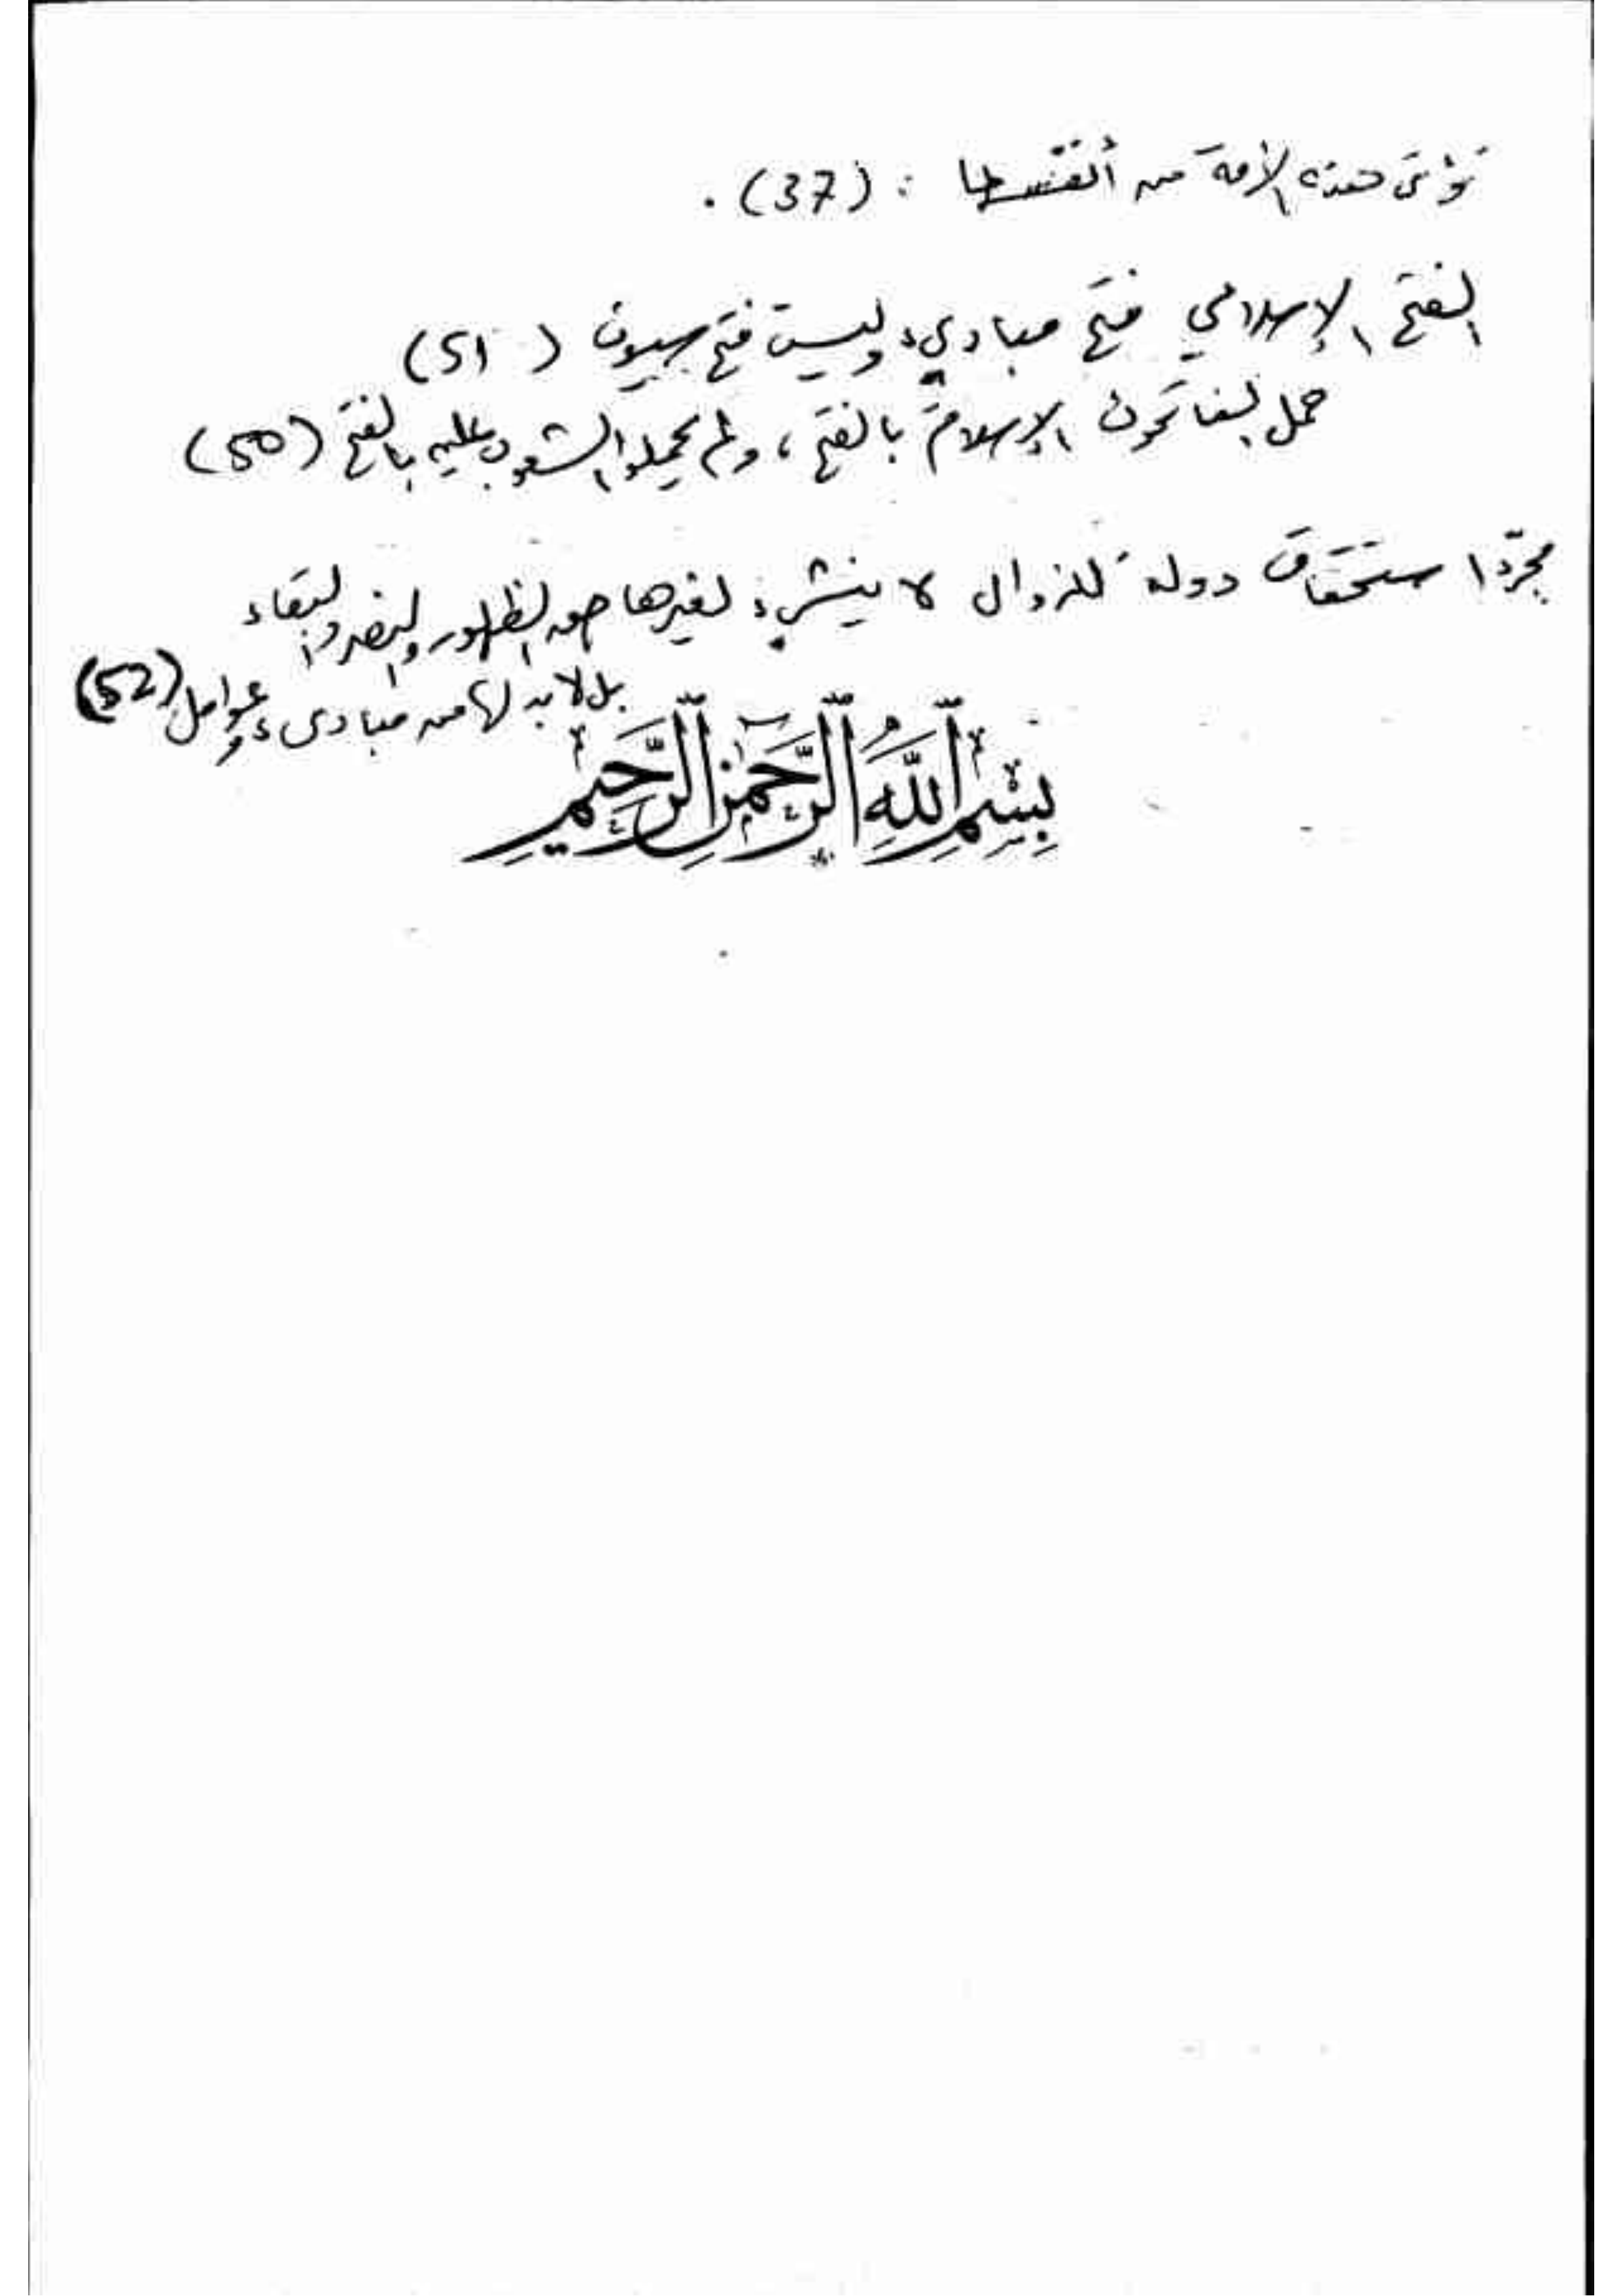 تؤتى هذه الأمة من أنفسها : (37) .
الفتح الإسلامي فتح مبادىء وليس فتح سيوف (51)
حمل الفاتحون الإسلام بالفتح ، ولم يحملوا الشعوب عليه بالفتح (50)
مجرّد استحقاق دولة للزوال لا ينشىء لغيرها حق الظهور والنصر والبقاء
بل لا بد لها من مبادىء وعوامل (52)
بِسْمِ اللَّهِ الرَّحْمَٰنِ الرَّحِيمِ